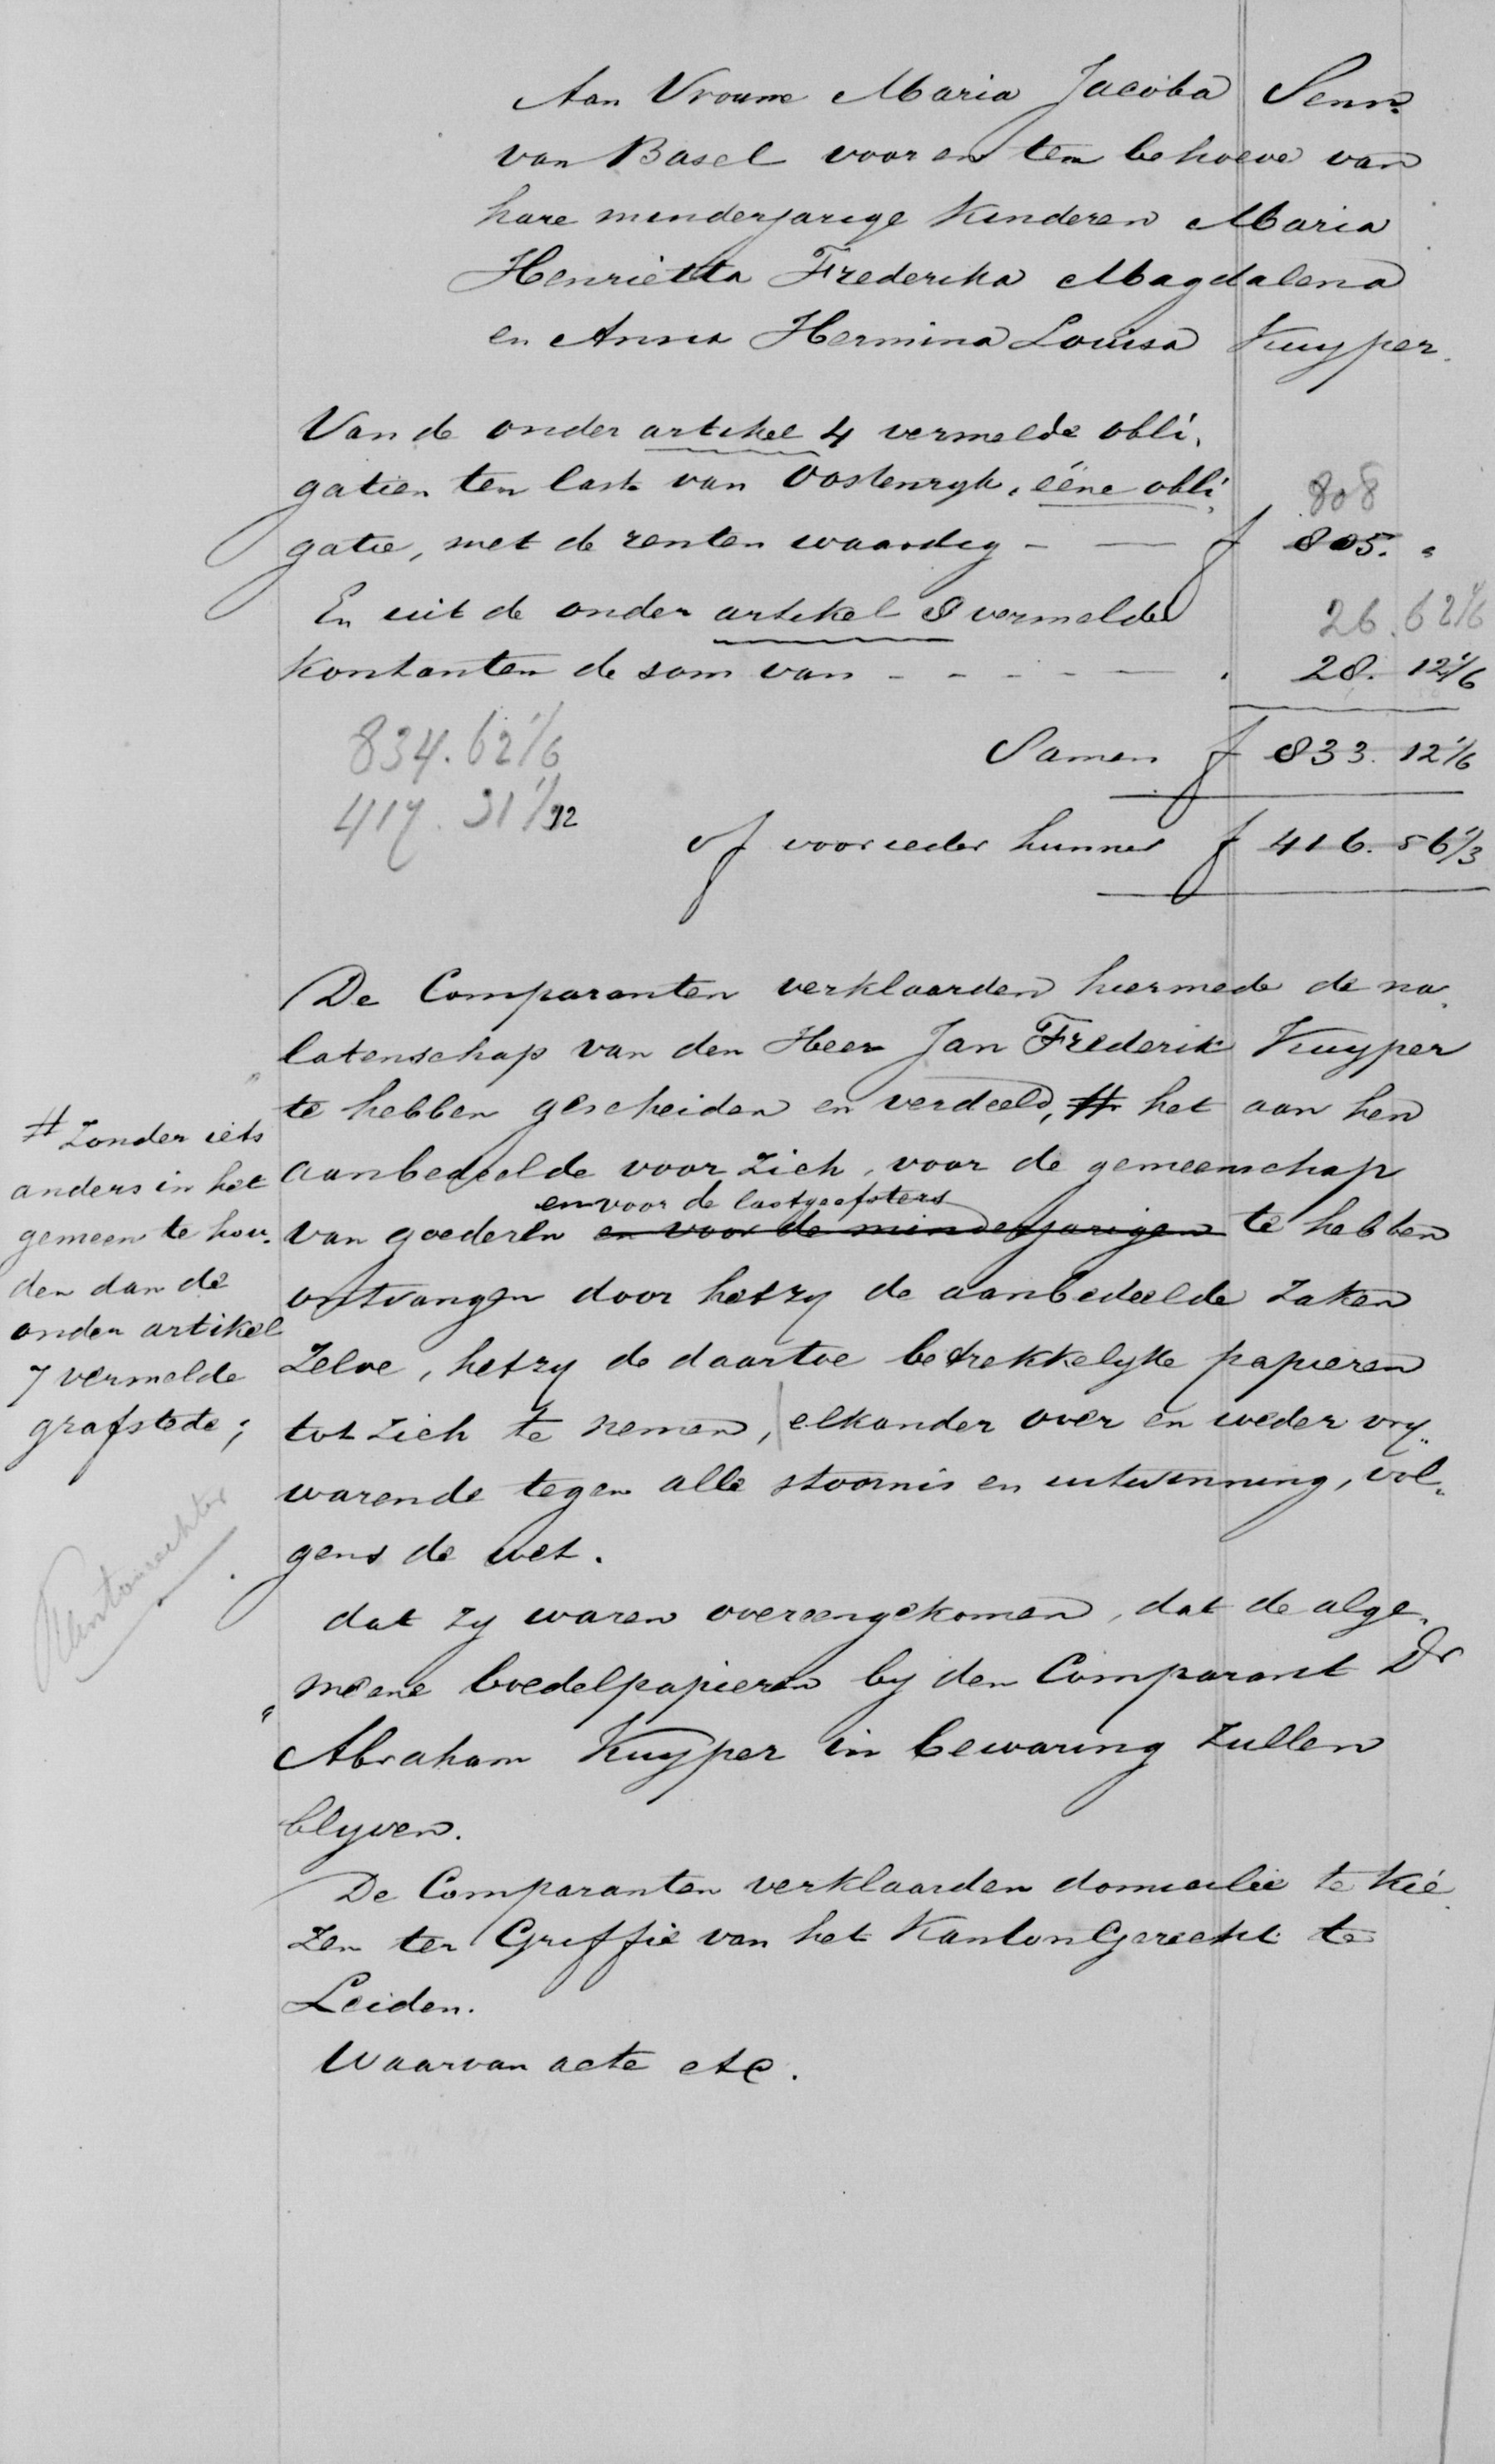 Aan Vrouwe Maria Jacoba Senn
van Basel voor en ten behoeve van
hare minderjarige Kinderen Maria
Henriëtta Frederika Magdalena
en Anna Hermina Louisa Kuyper.
Van de onder artikel 4 vermelde obli,
gatien ten laste van Oostenryk, ééne obli,
808
gatie, met de renten waardig - — f 805. "
En uit de onder artikel 8 vermelde
26.62 1/6
Kontanten de som van - - - - - — . 28. 12 1/6
834.62 1/6
Samen f 833. 12 1/6
417. 31 1/12
of voor ieder hunner f 416. 56 1/3
De Comparanten verklaarden hiermede de na,
latenschap van den Heer Jan Frederik Kuyper
te hebben gescheiden en verdeeld, # het aan hen
aanbedeelde voor zich, voor de gemeenschap
en voor de lastgeefsters
van goederen en voor de minderjarigen te hebben
ontvangen door hetzy de aanbedeelde zaken
Zelve, hetzy de daartoe betrekkelyke papieren
tot zich te nemen, elkander over en weder vry,,
warende tegen alle stoornis en uitwinning, vol,,
gens de wet.
# Zonder iets
anders in het
gemeen te hou,
den dan de
onder artikel
7 vermelde
grafstede;
Kantonrechter
dat zy waren overeengekomen, dat de alge,
meene boedelpapieren by den Comparant Dr
Abraham Kuyper in bewaring zullen
blyven.
De Comparanten verklaarden domicilie te Kie
zen ter Griffie van het KantonGerecht te
Leiden.
Waarvan acte etc.